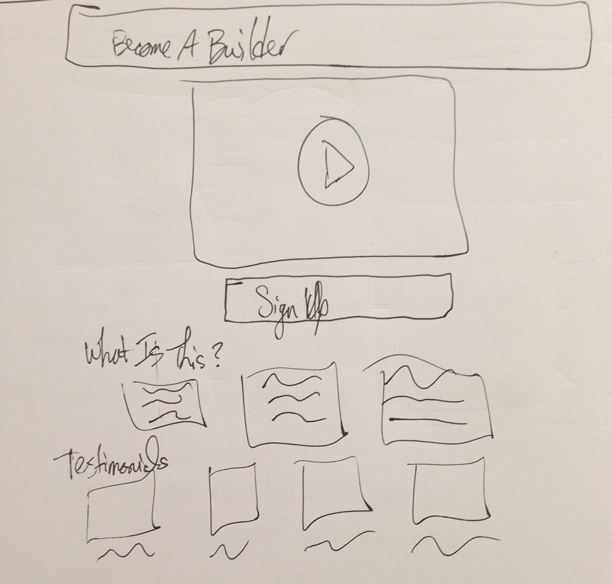 Become A Builder
Sign Up
What Is this?
Testimonials